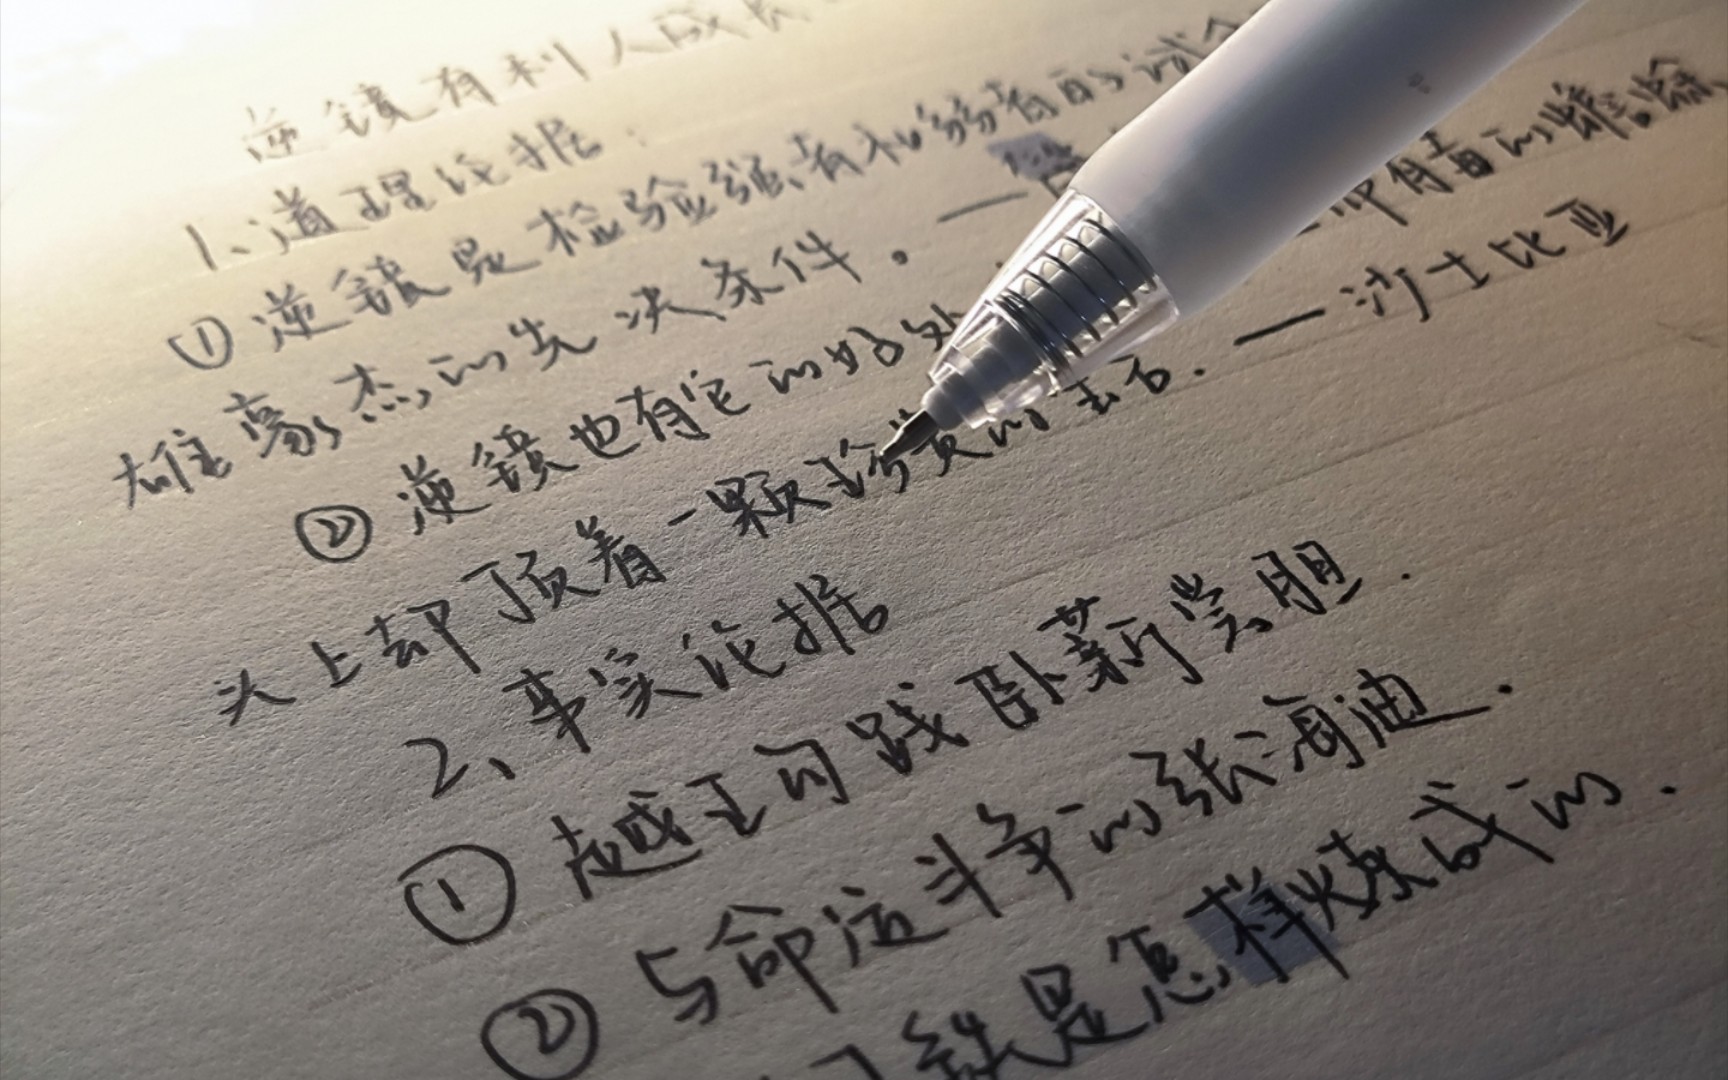 逆镜有利人成长
1、道理论据：
①逆镜是检验强者和弱者的试金
雄豪杰的先决条件。一
②逆镜也有它的好处 的蟾蜍、
头上却顶着一颗珍贵的 . 一沙士比亚
2、事实论据
①越王句践卧薪尝胆.
②与命运斗争的张海迪.
钢铁是怎样炼成的.